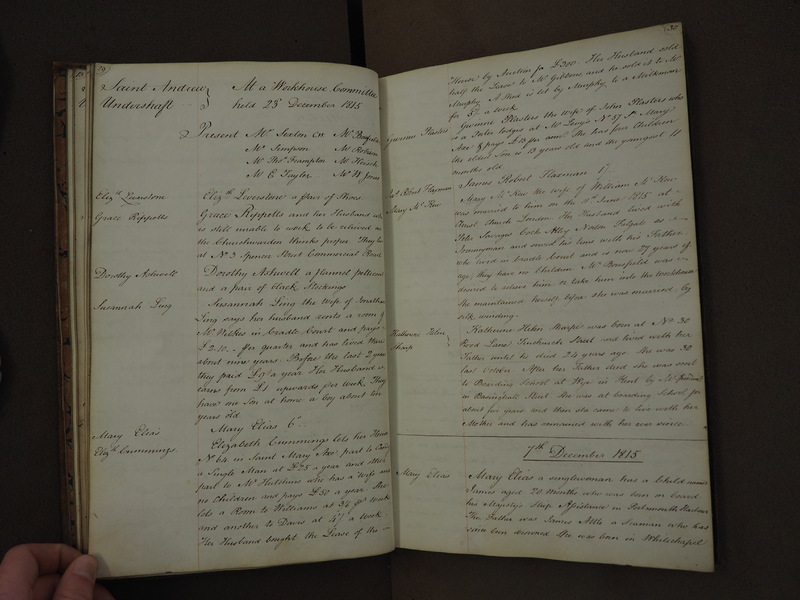 29
Saint Andrew
Undershaft
At a Workhouse Committee
held 23 December 1815
Present Mr Sexton CW Mr
Mr Simpson Mr
Mr Thos Frampton Mr
Mr E Taylor Mr W Jones
Elizth
Elizth Leverstone a pair of Shoes
Grace Rippells
Grace Rippells and her Husband who
is still unable to work to be relieved as
the Churchwarden thinks proper They live
at No 3 Spencer Street Commercial Road
Dorothy Ashwell
Dorothy Ashwell a flannel petticoat
and a pair of black Stockings
Susannah Ling
Susannah Ling the wife of Jonathan
Ling says her husband rents a room of
Mr Wilkes in Cradle Court and pays
£2.10.- per quarter and has lived there
about nine years. Before the last 2 years
they paid £9 a year Her Husband
earns from £1 upwards per Week. They
have one Son at home a boy about ten
years old
Mary Elias
Mary Elias 6
Elizth Cummings
Elizabeth Cummings lets her House
No 64 in Saint Mary Axe part to
a Single Man at £25 a year and other
part to Mr Hutchins who has a wife and
no Children and pays £30 a year. She
lets a Room to Williams at 3/6 per week
and another to Davis at 4/ a week.
Her Husband bought the Lease of the
30
House by Auction for £300. Her Husband sold
half the Lease to Mr Gibbons and he sold it to Mr
Murphy. A Shed is let by Murphy to a Milkman
for 5/- a week
Gwinne Plasters
Gwinne Plasters the wife of John Plasters who
is a Tailor lodges at Mr Levy's No 57 St Mary
Axe & pays £10 per ann. She has four Children
the eldest Son is 13 years old and the youngest 10
months old
Jas Robert Flaxman
James Robert Flaxman 1/
Mary Mc Kew
Mary Mc Kew the wife of William Mc Kew
was married to him on the 11th June 1815 at
Christ Church London. Her Husband lived with
Peter Savage Cock Alley Norton Falgate as
Journeyman and served his time with his Father
who lived in Cradle Court and is now 27 years of
age, they have no Children Mr Bousfield was
desired to relieve him or take him into the workhouse
She maintained herself before she was married by
silk winding.
Katherine Helen
Sharpe
Katherine Helen Sharpe was born at No 30
Rood Lane Fenchurch Street and lived with her
Father until he died 24 years ago. She was 30
last October. After her Father died she was sent
to Boarding School at Wye in Kent by Mr
in Basinghall Street. She was at boarding School for
about five years and then she came to live with her
Mother and has remained with her ever since.
7th December 1815
Mary Elias
Mary Elias a singlewoman has a Child named
James aged 20 Months who was born on board
his Majestys Ship in Portsmouth Harbour
The Father was James a Seaman who has
since been drowned She was born in Whitechapel